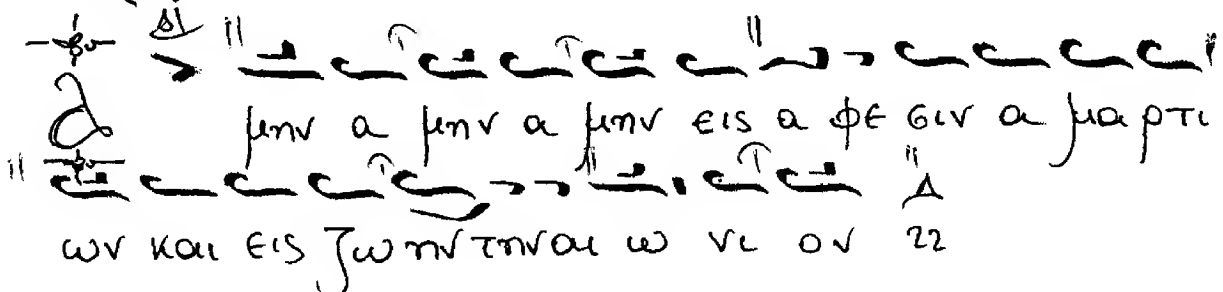 α μην α μην α μην εις α φε σιν α μα ρτι
ων και εις ζωην την αι ω νι ον 22